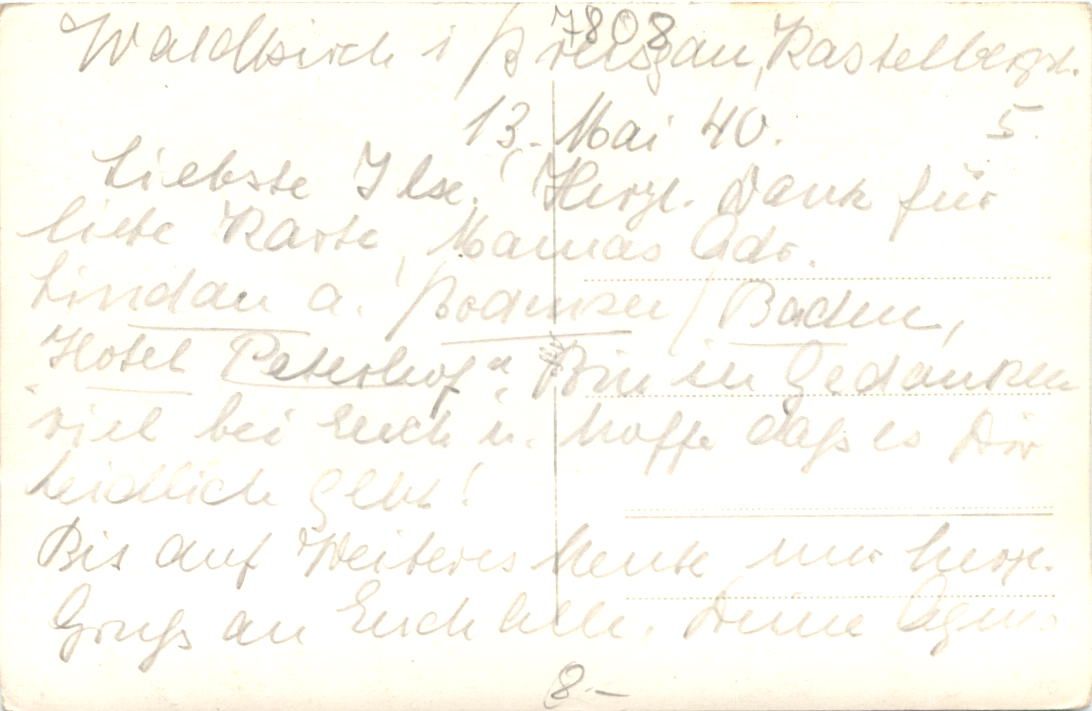 7808
Waldkirch i/Breisgau, Kastelbergstr.
13. Mai 40. 5.
Liebste Ilse! Herzl. Dank für
liebe Karte, Mamas Adr.
Lindau a./Bodensee/Baden,
"Hotel Peterhof". Bin in Gedanken
viel bei Euch u. hoffe daß es Dir
leidlich geht!
Bis auf Weiteres heute nur herzl.
Gruß an Euch alle. Deine Agnes
8.-